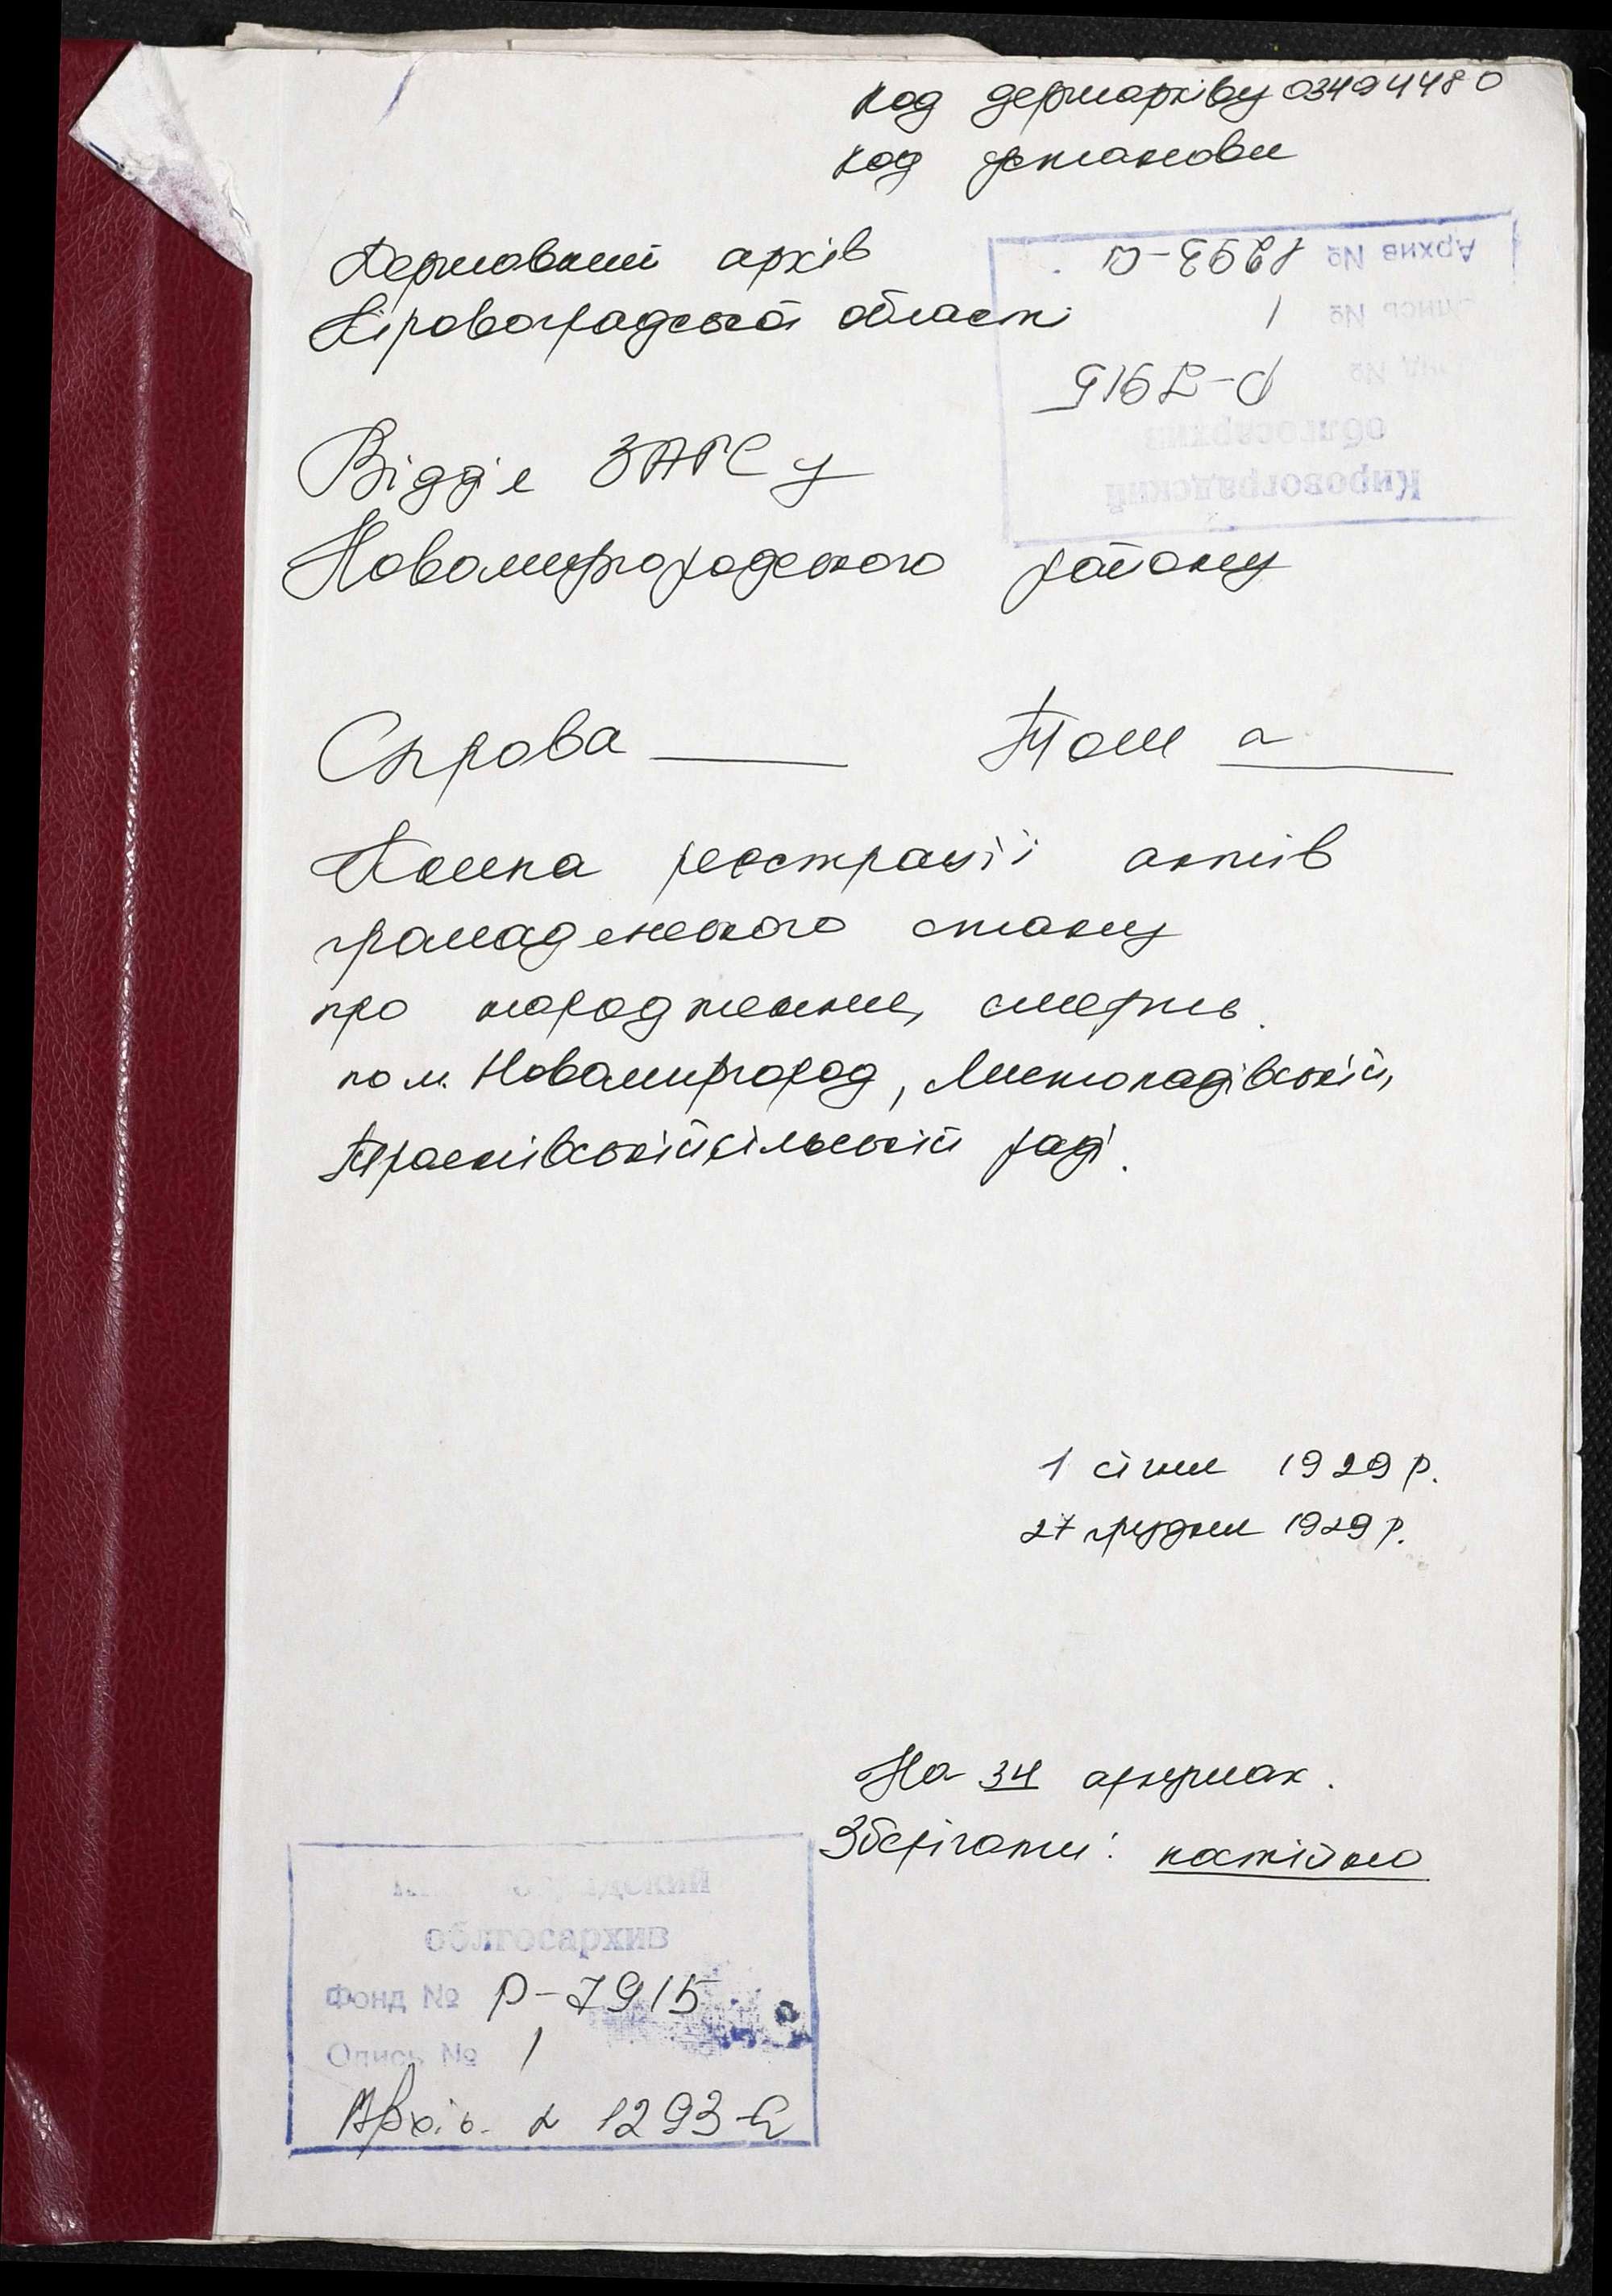 код держархіву 03494480
код установи
Державний архів
Кіровоградської області
Архив № 1293-а
Опись № 1
Фонд № Р-7915
облгосархив
Кировоградский
Відділ ЗАГСу
Новомиргородського району
Справа ____ Том а
Книга реєстрації актів
громадянського стану
про народження, смерть.
по м. Новомиргород, Листопадівській,
сільській раді.
1 січня 1929 р.
27 грудня 1929 р.
На 34 аркушах.
Зберігати: постійно
облгосархив
Фонд № Р-7915
Опись № 1
1293-а